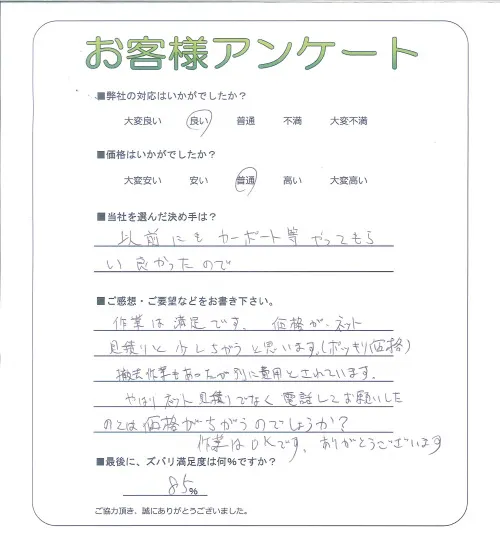 お客様アンケート
■弊社の対応はいかがでしたか？
大変良い 良い 普通 不満 大変不満
■価格はいかがでしたか？
大変安い 安い 普通 高い 大変高い
■当社を選んだ決め手は？
以前にもカーポート等やってもら
い良かったので
■ご感想・ご要望などをお書き下さい。
作業は満足です。価格が、ネット
見積りと少しちがうと思います。(ポッキリ価格)
撤去作業もあったが別に費用とされています。
やはりネット見積りでなく電話してお願いした
のとは価格がちがうのでしょうか？
作業はOKです。ありがとうございます
■最後に、ズバリ満足度は何%ですか？
85%
ご協力頂き、誠にありがとうございました。